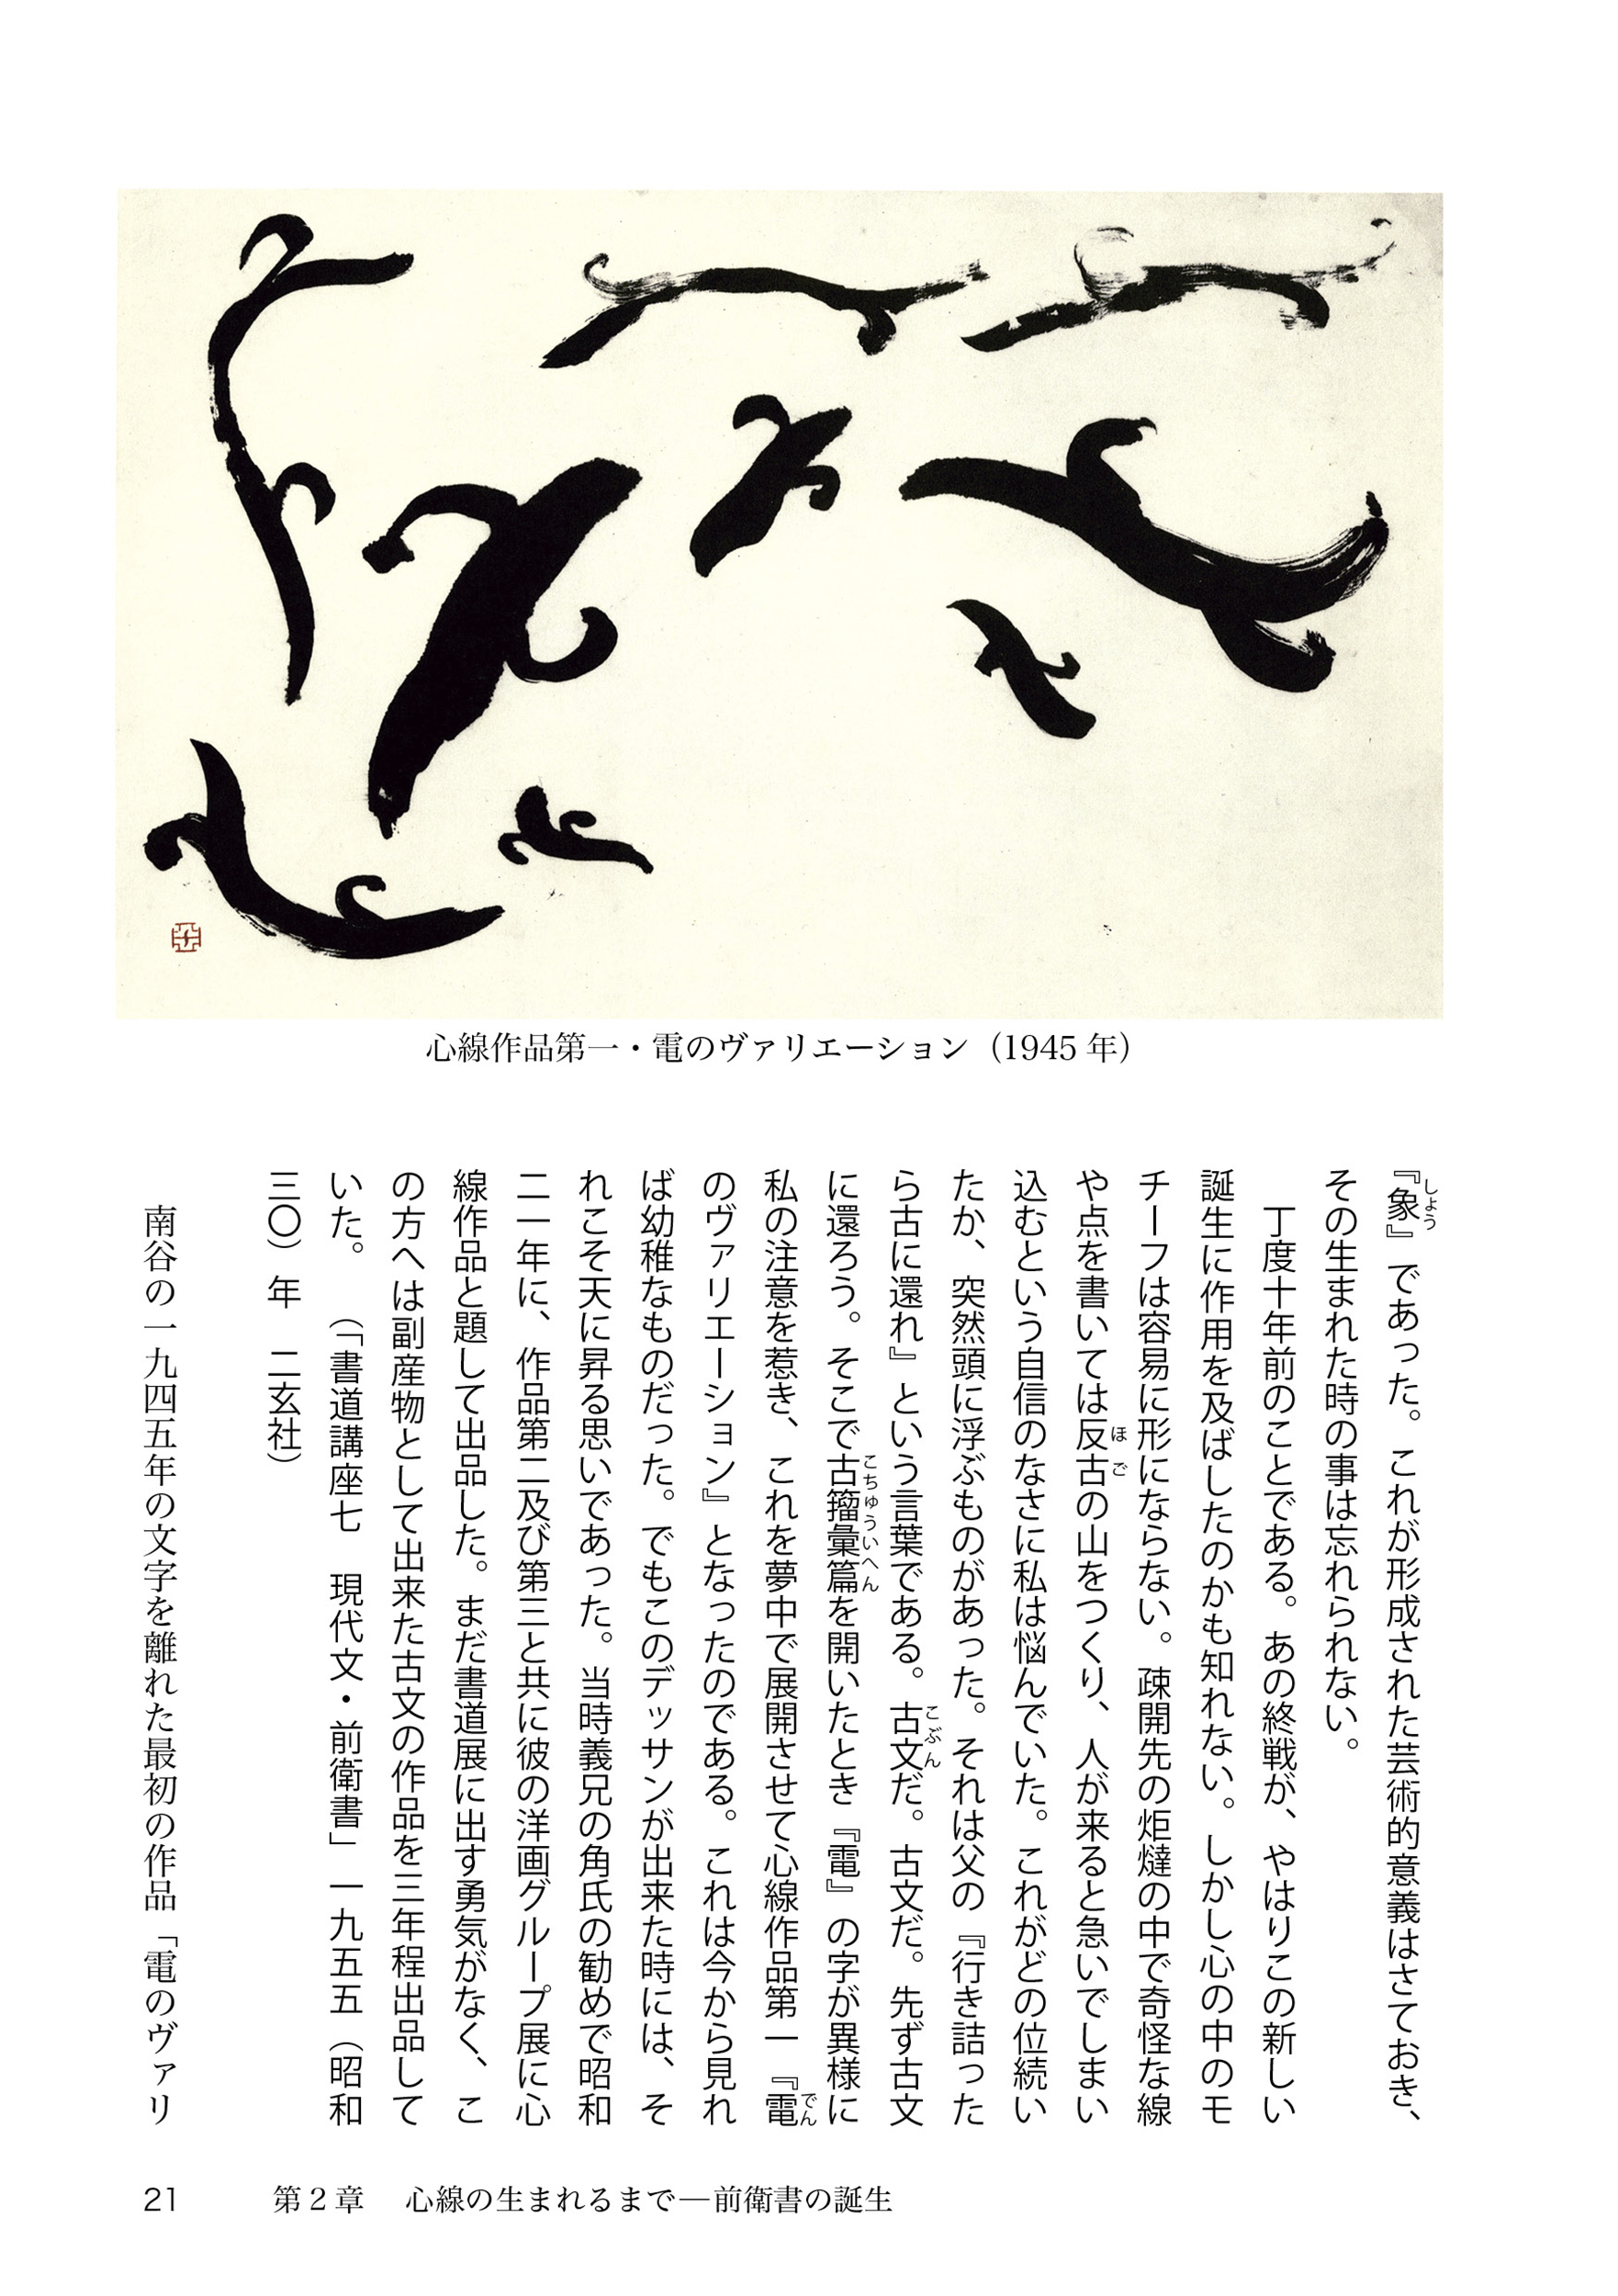 心線作品第一・電のヴァリエーション（1945 年）
『象』であった。これが形成された芸術的意義はさておき、
しょう
その生まれた時の事は忘れられない。
丁度十年前のことである。あの終戦が、やはりこの新しい
誕生に作用を及ばしたのかも知れない。しかし心の中のモ
チーフは容易に形にならない。疎開先の炬燵の中で奇怪な線
や点を書いては反古の山をつくり、人が来ると急いでしまい
ほご
込むという自信のなさに私は悩んでいた。これがどの位続い
たか、突然頭に浮ぶものがあった。それは父の『行き詰った
ら古に還れ』という言葉である。古文だ。古文だ。先ず古文
こぶん
に還ろう。そこで古籀彙篇を開いたとき『電』の字が異様に
こちゅういへん
私の注意を惹き、これを夢中で展開させて心線作品第一『電
でん
のヴァリエーション』となったのである。これは今から見れ
ば幼稚なものだった。でもこのデッサンが出来た時には、そ
れこそ天に昇る思いであった。当時義兄の角氏の勧めで昭和
二一年に、作品第二及び第三と共に彼の洋画グループ展に心
線作品と題して出品した。まだ書道展に出す勇気がなく、こ
の方へは副産物として出来た古文の作品を三年程出品して
いた。（「書道講座七　現代文・前衛書」一九五五（昭和
三〇）年　二玄社）
南谷の一九四五年の文字を離れた最初の作品「電のヴァリ
21　第２章　心線の生まれるまで―前衛書の誕生